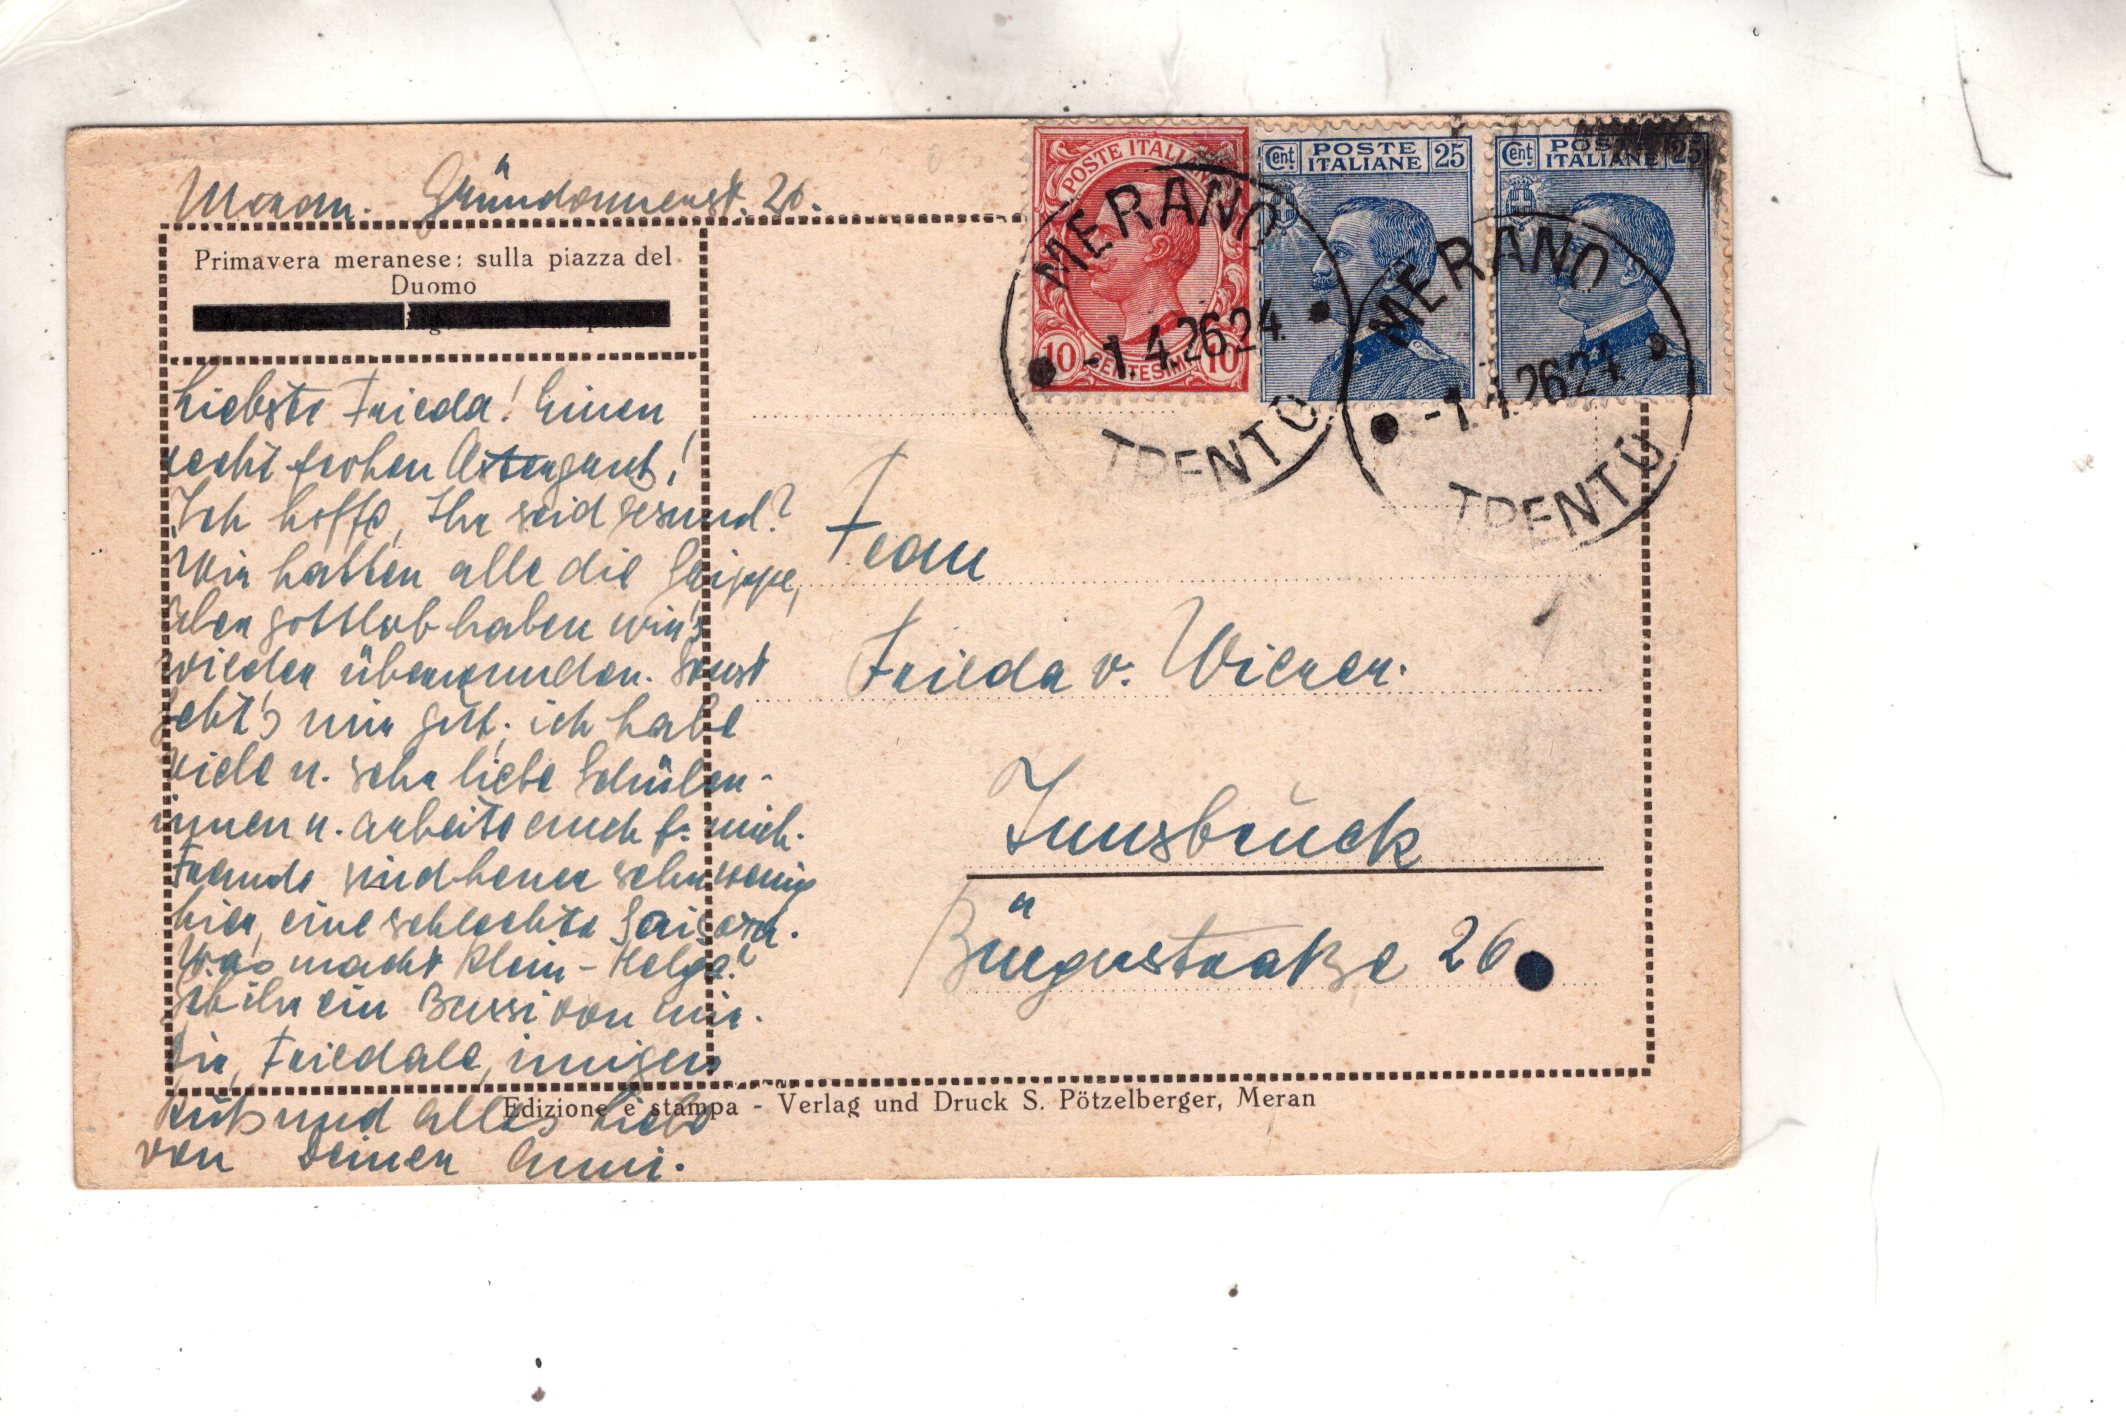 Meran. Gründonnerst. 26.
Primavera meranese: sulla piazza del
Duomo
Liebste Frieda! Einen
recht frohen Ostergruß!
Ich hoffe, Ihr seid gesund?
Wir hatten alle die Grippe,
aber gottlob haben wir's
wieder überwunden. Sonst
geht's mir gut, ich habe
viele u. sehr liebe Schüler-
innen u. arbeite auch f. mich.
Fremde sind heuer sehr wenig
hier, eine schlechte Saison.
Was macht Klein-Helga?
Gib ihr ein Bussi von mir.
Dir, Friedale, innigen
Kuß und alles Liebe
von Deiner Anni.
POSTE ITALIANE
10 CENTESIMI 10
Cent POSTE ITALIANE 25
Cent POSTE ITALIANE 25
MERANO
-1.4.26 24
TRENTO
MERANO
-1.4.26 24
TRENTO
Frau
Frieda v. Wieser.
Innsbruck
Bürgerstraße 26
Edizione e stampa - Verlag und Druck S. Pötzelberger, Meran